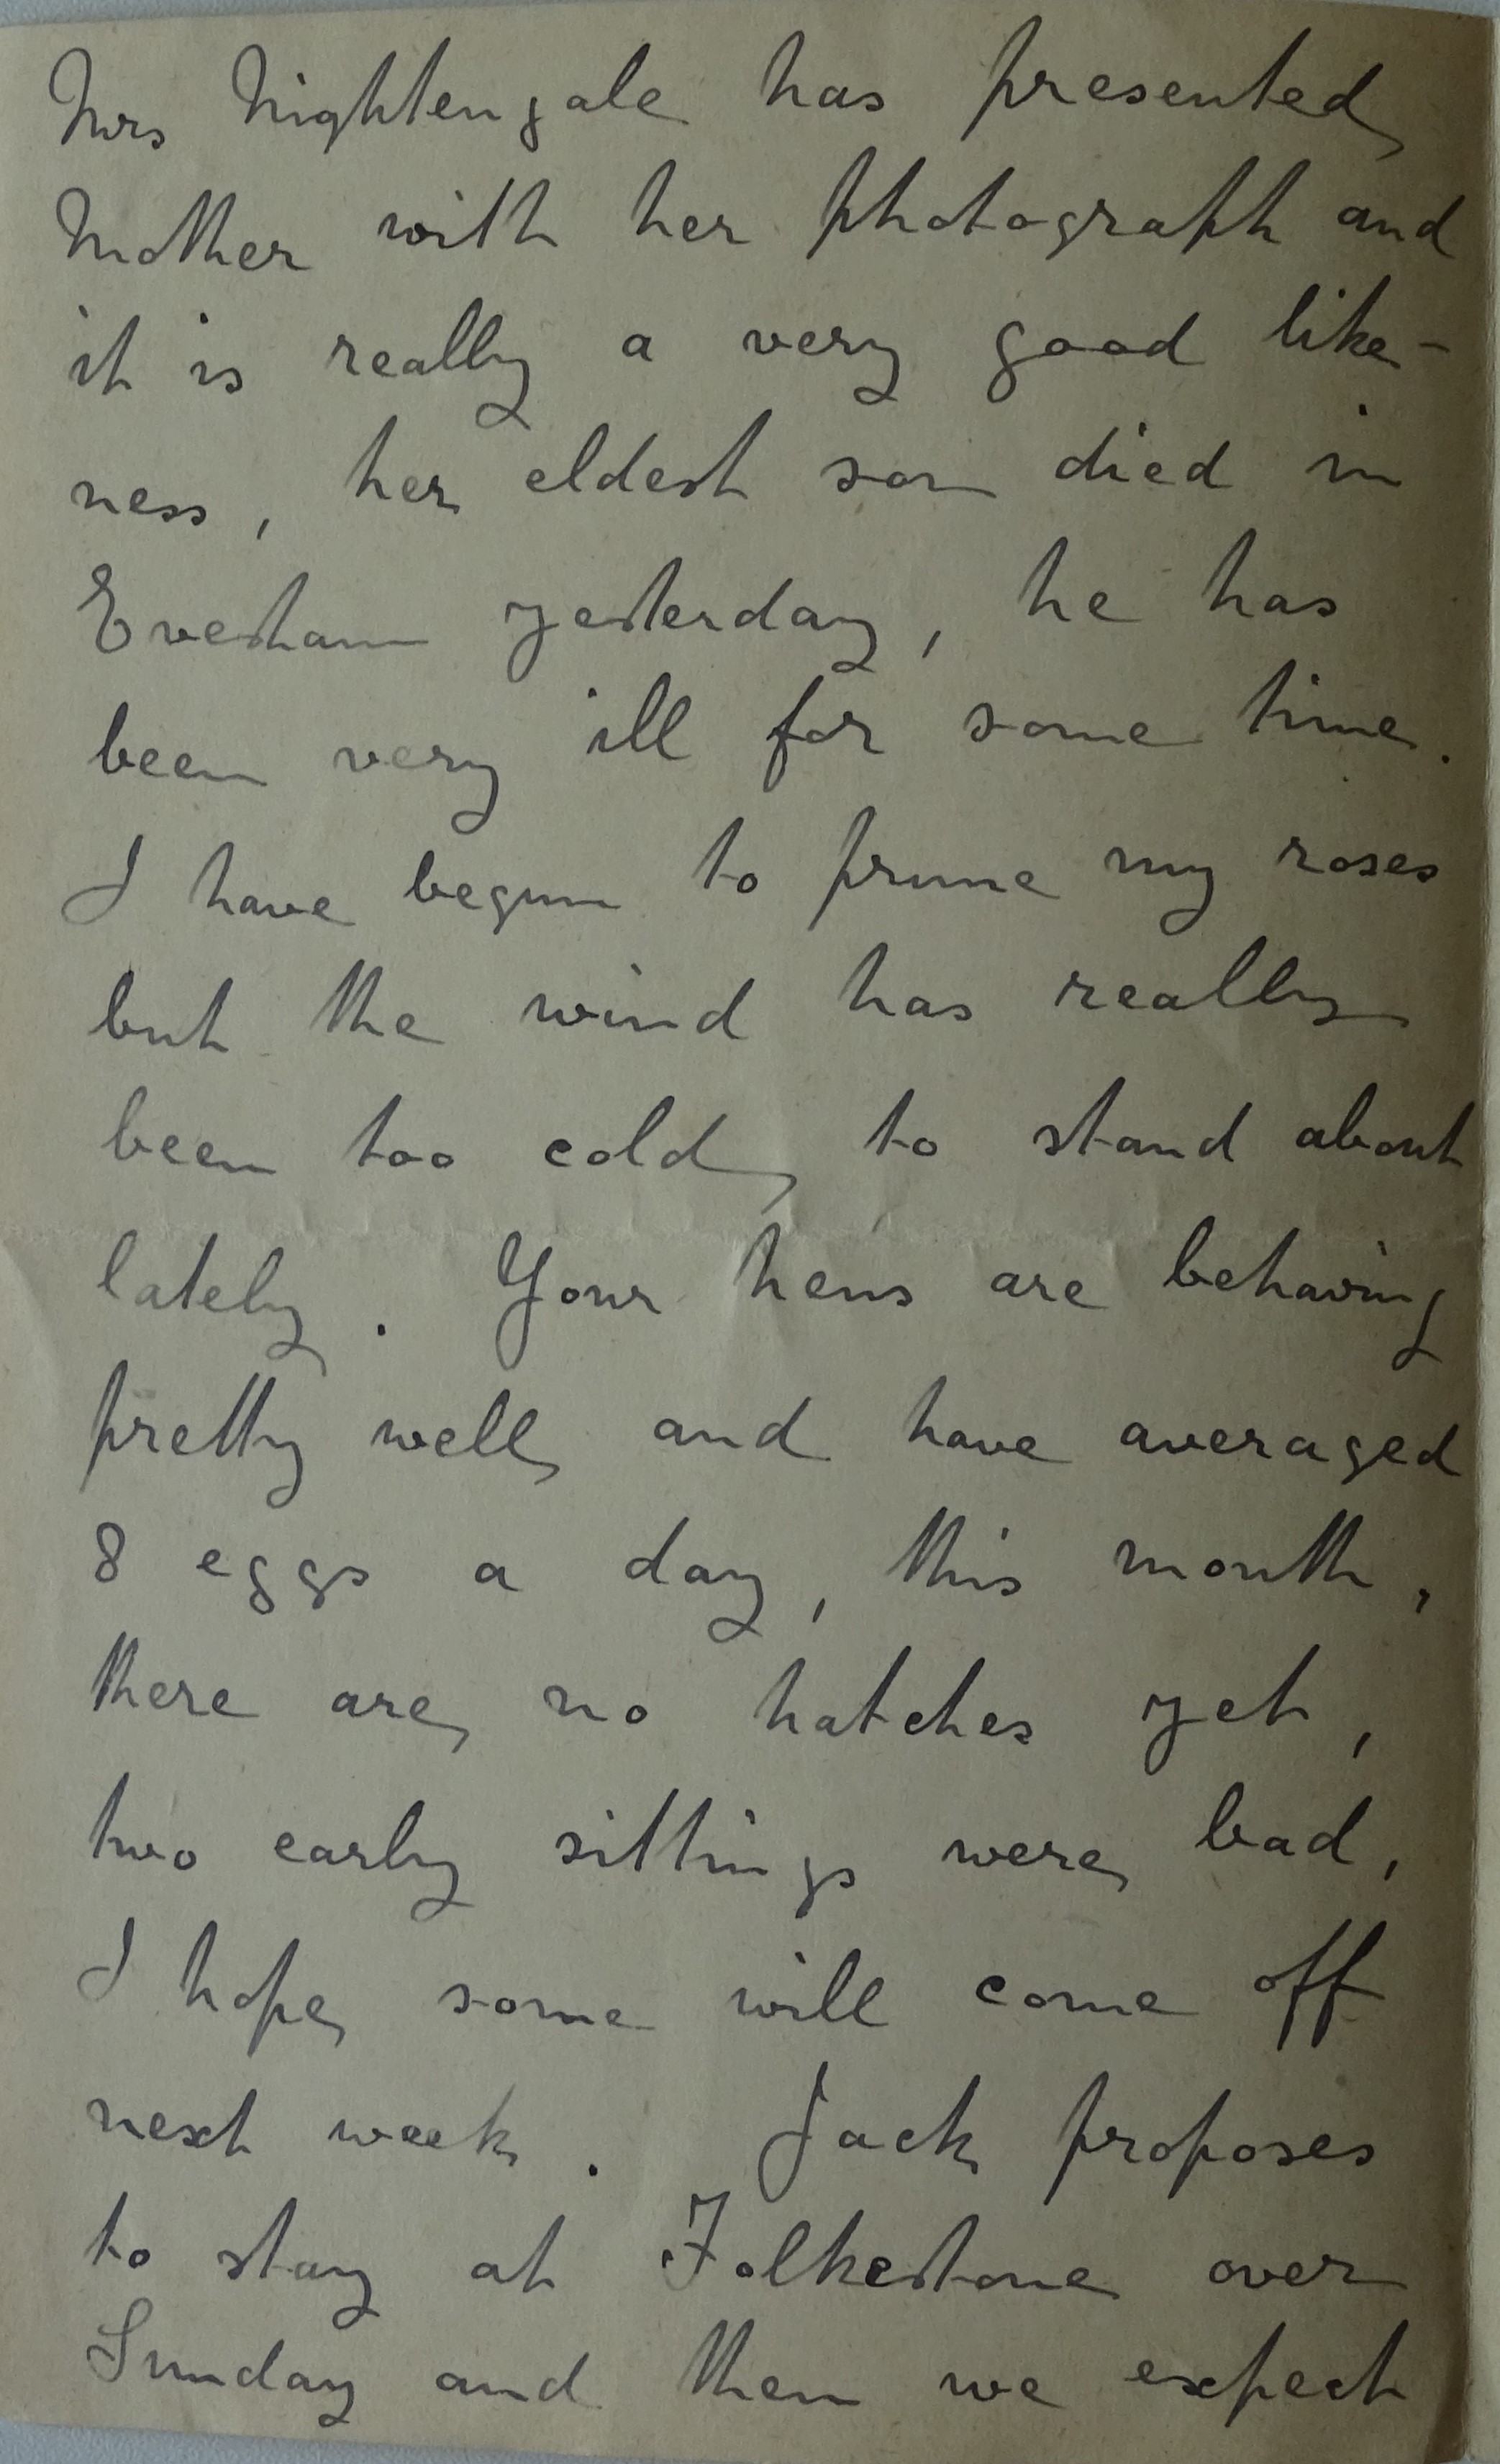 Mrs Nightengale has presented
Mother with her photograph and
it is really a very good like-
ness, her eldest son died in
Evesham yesterday, he has
been very ill for some time.
I have begun to prune my roses
but the wind has really
been too cold to stand about
lately. Your hens are behaving
pretty well and have averaged
8 eggs a day, this month,
there are no hatches yet,
two early sittings were bad,
I hope some will come off
next week. Jack proposes
to stay at Folkestone over
Sunday and then we expect